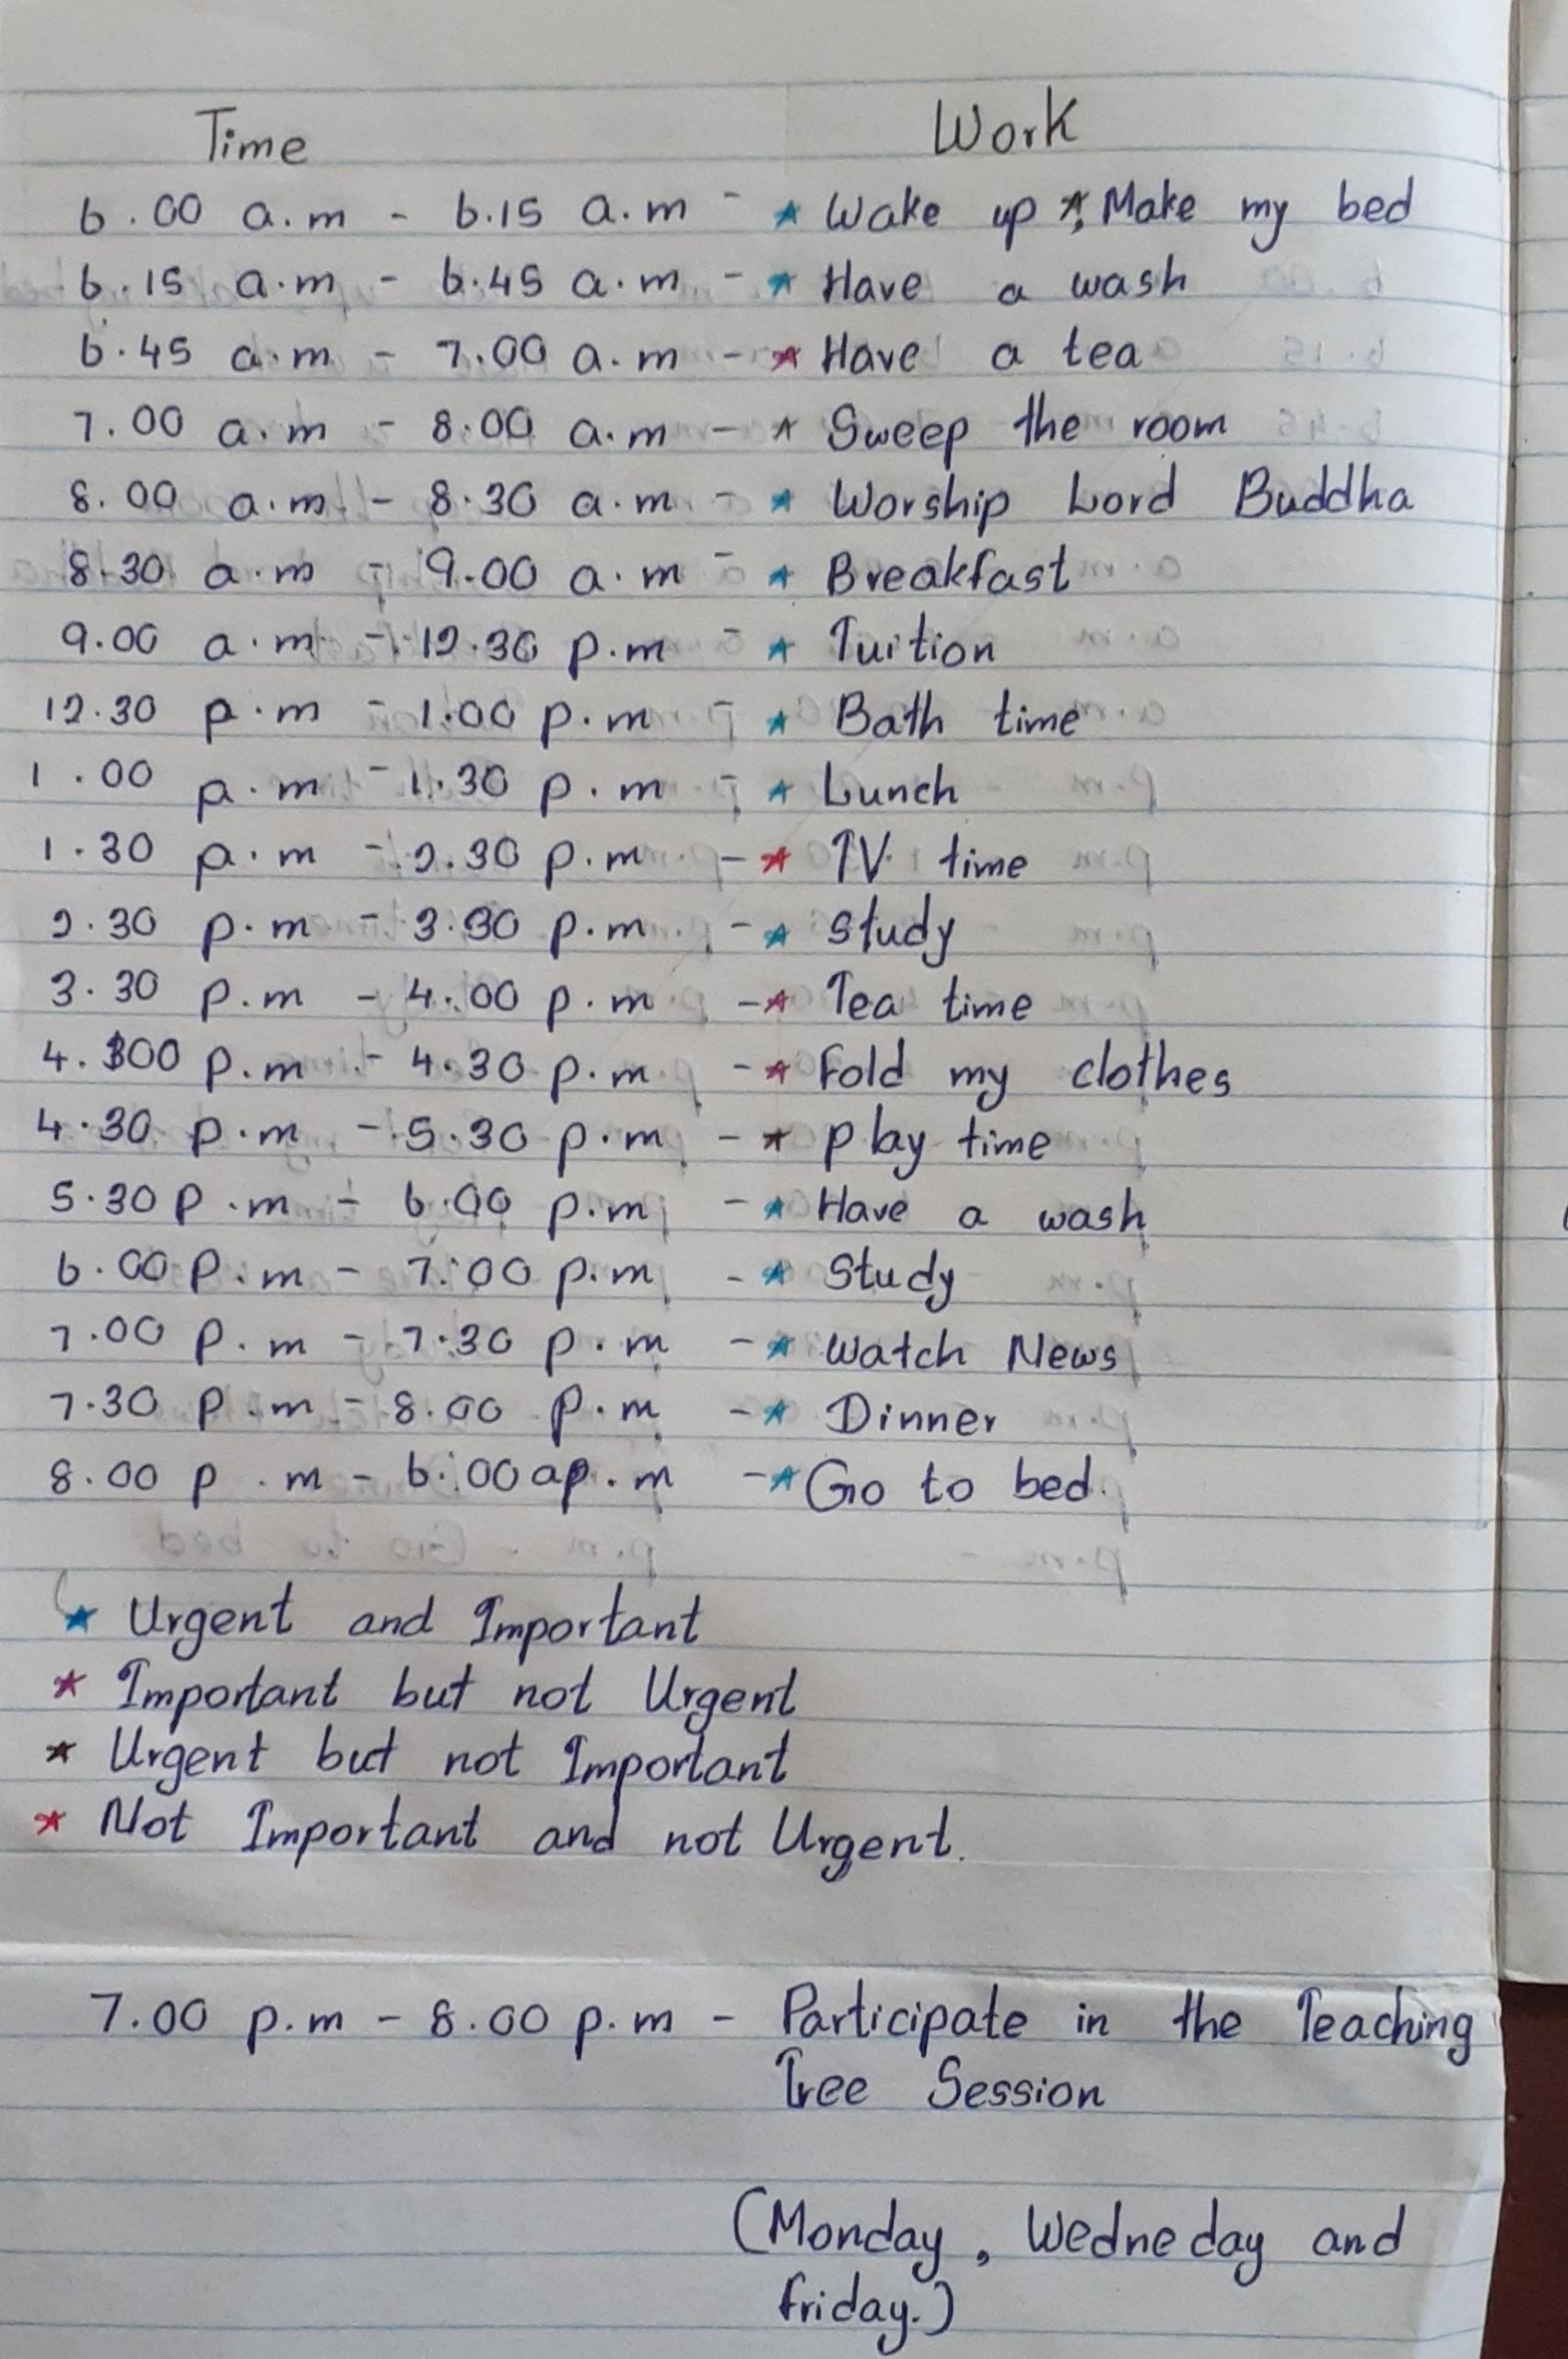 Time Work
6.00 a.m - 6.15 a.m - ★ Wake up ★, Make my bed
6.15 a.m - 6.45 a.m - ★ Have a wash
6.45 a.m - 7.00 a.m - ★ Have a tea
7.00 a.m - 8.00 a.m - ★ Sweep the room
8.00 a.m - 8.30 a.m - ★ Worship Lord Buddha
8.30 a.m - 9.00 a.m - ★ Breakfast
9.00 a.m - 12.30 p.m - ★ Tuition
12.30 p.m - 1.00 p.m - ★ Bath time
1.00 p.m - 1.30 p.m - ★ Lunch
1.30 p.m - 2.30 p.m - ★ TV time
2.30 p.m - 3.30 p.m - ★ Study
3.30 p.m - 4.00 p.m - ★ Tea time
4.00 p.m - 4.30 p.m - ★ Fold my clothes
4.30 p.m - 5.30 p.m - ★ Play time
5.30 p.m - 6.00 p.m - ★ Have a wash
6.00 p.m - 7.00 p.m - ★ Study
7.00 p.m - 7.30 p.m - ★ Watch News
7.30 p.m - 8.00 p.m - ★ Dinner
8.00 p.m - 6.00 a.m - ★ Go to bed.
★ Urgent and Important
★ Important but not Urgent
★ Urgent but not Important
★ Not Important and not Urgent.
7.00 p.m - 8.00 p.m - Participate in the Teaching
Tree Session
(Monday, Wedneday and
Friday.)